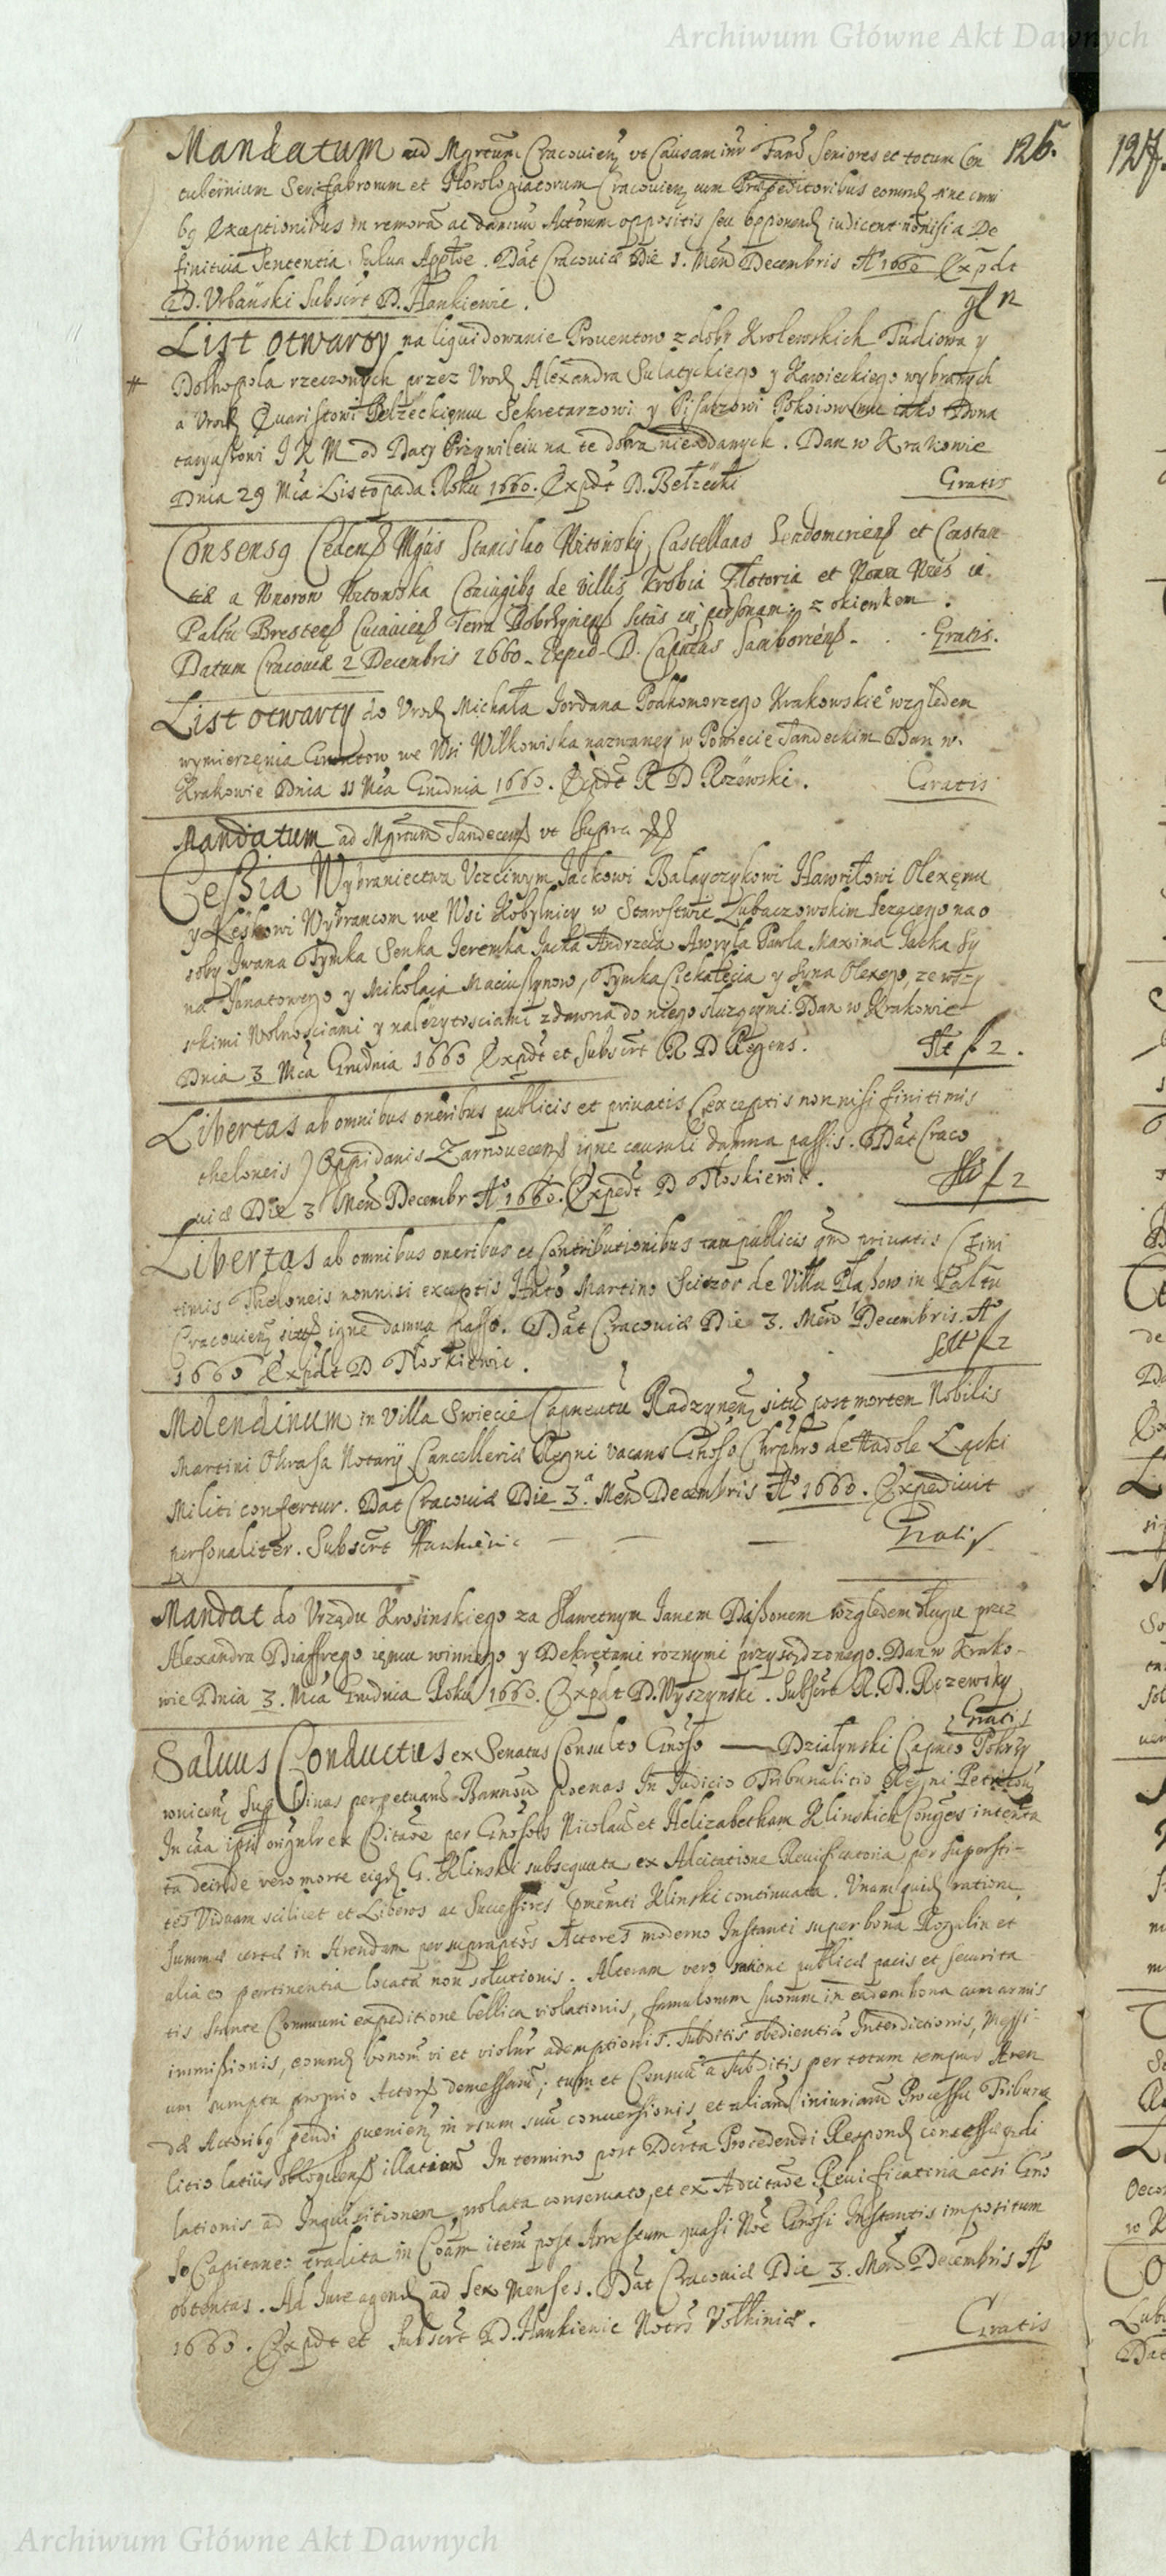 Archiwum Główne Akt Dawnych
126. 127.
Mandatum ad Mgrtum Cracovien ut Causam intr Famo Seniores et totum Con
tubernium Serifabrorum et Horologiatorum Cracovien cum Praepeditoribus eorund sine omni
bq Exceptionibus in remora ac damnu Actorum oppositis seu opponend iudicent nonisi a De
finitiva Sententia Salva Apptoe. Dat Cracoviae Die 1. Men Decembris Ao 1660 Expdt
D. Urbański Subscrt D. Hankiewic. gl 12
List otwarty na liquidowanie Proventow z dobr Krolewskich Tudiowa y
# Dołhopola rzeczonych przez Urod Alexandra Sulatyckiego y Kawieckiego wybranych
a Urod Evaristowi Bełżeckięmu Sekretarzowi y Pisarzowi Pokoiowemu iako Dona
taryuszowi J K M od Daty Przywileiu na te dobra nieoddanych. Dan w Krakowie
Dnia 29 Mca Listopada Roku 1660. Expdt D. Bełzecki Gratis
Consensq Cedend Mgcis Stanislao Witowsky, Castellano Sendomirien et Constan
tiae a Unorow Witowska Coniugibq de villis Krobia Złotoria et Nowa Wies in
Paltu Bresten Cuiavien Terra Dobrzynien sitis in personam z okienkom.
Datum Cracoviae 2 Decembris 1660. Exped. D. Caputas Samborien. Gratis.
List otwarty do Urod Michała Jordana Podkomorzego Krakowskieo względem
wymierzęnia Gruntow we Wsi Wilkowiska nazwaney w Powiecie Sandeckim Dan w
Krakowie Dnia 11 Mca Grudnia 1660. Expdt R D Rożewski. Gratis
Mandatum ad Mgrtum Sandecen ut supra
Cessia Wybraniectwa Uczciwym Jackowi Balayczykowi Hawriłowi Olexęmu
y Leskowi Wybrancom we Wsi Kobylnicy w Starostwie Lubaczowskim leżącego na o
soby Iwana Tymka Senka Jeremka Jacka Andrzeia Awryła Pawla Maxima Jacka Sy
na Ihnatowego y Mikołaia Maciuszynow, Tymka Ciekałęcia y Syna Olexego, ze wszy
stkimi Wolnosciami y należytosciami zdawna do niego służącymi. Dan w Krakowie
Dnia 3 Mca Grudnia 1660 Expdt et subscrt R D Regens. f 2.
Libertas ab omnibus oneribus publicis et privatis (exceptis nonnisi finitimis
theloneis) Oppidanis Zarnovecen igne casuali damna passis. Dat Craco
viae Die 3 Men Decembr Ao 1660. Expdt D Tłoskiewic. f 2
Libertas ab omnibus oneribus et Contributionibus tam publicis qm privatis (fini
timis Theloneis nonnisi exceptis Hnto Martino Scizor de Villa Płaszow in Paltu
Cracovien igne damna passo. Dat Cracoviae Die 3. Men Decembris. Ao
1660 Expdt D Tłoskiewic. f 2
Molendinum in Villa Swiecie Capneatu Radzynen situ post mortem Nobilis
Martini Okrasa Notarij Cancelleriae Regni vacans Gnoso Chrphro de Nadole Łącki
Militi confertur. Dat Cracoviae Die 3a. Men Decembris Ao 1660. Expedivit
personaliter. Subscrt Hankiewic Gratis
Mandat do Urzędu Krosinskiego za Sławetnym Janem Dassonem względem długu przez
Alexandra Diaffrego ięmu winnego y Dekretami roznymi przysądzonego. Dan w Krako-
wie Dnia 3. Mca Grudnia Roku 1660. Expdt D. Wyszynski. Subscrt R. D. Rożewsky
Gratis
Salvus Conductus ex Senatus Consulto Gnoso — Działynski Capneo Pokrzy
wnicen Sup Binas perpetuaru Bannou poenas In Judicio Tribunalitio Regni Petricou
In caa originlr ex Citaoe per Gnosos Nicolau et Helizabetham Klinskich Conges intenta
ta deinde vero morte eiqd G. Klinski subsequuta ex Adcitatione Reuificatoria per supersti-
tes Viduam scilicet et Liberos ac Successores pmemti Klinski continuata. Unam quid ratione
Summae certae in Arendam per supraptos Actores moderno Instanti super bona Rogalin et
alia eo pertinentia locata non solutionis. Alteram vero ratione publicae pacis et securita
tis stante Communi expeditione bellica violationis, famulorum suorum in eadem bona cum armis
immissionis, eorund bonor vi et violnr ademptionis. Subditis obedientiae Interdictionis, Messi-
um sumptu proprio Actor demessaru; tum et Censuu a Subditis per totum tempus Aren
dae Actoribq pendi pvenien in rsum suu conversionis et aliaru iniuriaru Processu Tribuna
litio latius obloquen illataru In termino post Dcrta Procedendi Respond
lationis ad Inquisitionem, prolata conservato, et ex Adcitaoe Reuificatoria acsi Gno
so Capitaneo tradita in Coam item post Arrestum quasi Noe Gnosi Instantis impositum
obtentas. Ad Jure agend ad Sex Menses. Dat Cracoviae Die 3. Men Decembris Ao
1660. Expdt et Subscrt D. Hankiewic Notrs Volhiniae. Gratis
Archiwum Główne Akt Dawnych